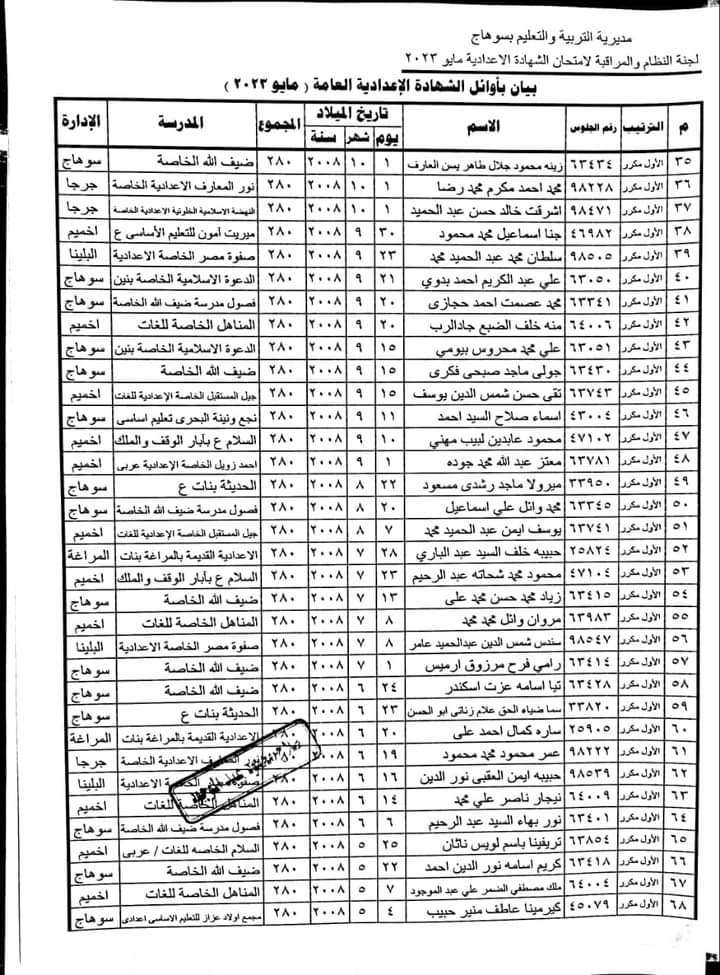 مديرية التربية والتعليم بسوهاج
لجنة النظام والمراقبة لامتحان الشهادة الاعدادية مايو ٢٠٢٣
بيان بأوائل الشهادة الإعدادية العامة ( مايو ٢٠٢٣ )
م الترتيب رقم الجلوس الاسم تاريخ الميلاد المجموع المدرسة الإدارة
يوم شهر سنة
٣٥ الأول مكرر ٦٣٤٣٤ زينه محمود جلال طاهر يسن العارف ١ ١٠ ٢٠٠٨ ٢٨٠ ضيف الله الخاصة سوهاج
٣٦ الأول مكرر ٩٨٢٢٨ محمد احمد مكرم محمد رضا ١ ١٠ ٢٠٠٨ ٢٨٠ نور المعارف الاعدادية الخاصة جرجا
٣٧ الأول مكرر ٩٨٤٧١ اشرقت خالد حسن عبد الحميد ١ ١٠ ٢٠٠٨ ٢٨٠ النهضة الاسلامية الخلوتية الاعدادية الخاصة جرجا
٣٨ الأول مكرر ٤٦٩٨٢ جنا اسماعيل محمد محمود ٣٠ ٩ ٢٠٠٨ ٢٨٠ ميريت أمون للتعليم الأساسى ع اخميم
٣٩ الأول مكرر ٩٨٥٠٥ سلطان محمد عبد الحميد محمد ٢٣ ٩ ٢٠٠٨ ٢٨٠ صفوة مصر الخاصة الاعدادية البلينا
٤٠ الأول مكرر ٦٣٠٥٠ علي عبد الكريم احمد بدوي ٢١ ٩ ٢٠٠٨ ٢٨٠ الدعوة الاسلامية الخاصة بنين سوهاج
٤١ الأول مكرر ٦٣٣٤١ محمد عصمت احمد حجازى ٢٠ ٩ ٢٠٠٨ ٢٨٠ فصول مدرسة ضيف الله الخاصة سوهاج
٤٢ الأول مكرر ٦٤٠٠٦ منه خلف الضبع جادالرب ٢٠ ٩ ٢٠٠٨ ٢٨٠ المناهل الخاصة للغات اخميم
٤٣ الأول مكرر ٦٣٠٥١ علي محمد محروس بيومي ١٥ ٩ ٢٠٠٨ ٢٨٠ الدعوة الاسلامية الخاصة بنين سوهاج
٤٤ الأول مكرر ٦٣٤٣٠ جولى ماجد صبحى فكرى ١٥ ٩ ٢٠٠٨ ٢٨٠ ضيف الله الخاصة سوهاج
٤٥ الأول مكرر ٦٣٧٤٣ تقى حسن شمس الدين يوسف ١٥ ٩ ٢٠٠٨ ٢٨٠ جيل المستقبل الخاصة الإعدادية للغات اخميم
٤٦ الأول مكرر ٤٣٠٠٤ اسماء صلاح السيد احمد ١١ ٩ ٢٠٠٨ ٢٨٠ نجع ونينة البحرى تعليم اساسى سوهاج
٤٧ الأول مكرر ٤٧١٠٢ محمود عابدين لبيب مهني ١٠ ٩ ٢٠٠٨ ٢٨٠ السلام ع بأبار الوقف والملك اخميم
٤٨ الأول مكرر ٦٣٧٨١ معتز عبد الله محمد جوده ١ ٩ ٢٠٠٨ ٢٨٠ احمد زويل الخاصة الإعدادية عربى اخميم
٤٩ الأول مكرر ٣٣٩٥٠ ميرولا ماجد رشدى مسعود ٢٢ ٨ ٢٠٠٨ ٢٨٠ الحديثة بنات ع سوهاج
٥٠ الأول مكرر ٦٣٣٤٥ محمد وائل علي اسماعيل ٢٠ ٨ ٢٠٠٨ ٢٨٠ فصول مدرسة ضيف الله الخاصة سوهاج
٥١ الأول مكرر ٦٣٧٤١ يوسف ايمن عبد الحميد محمد ٧ ٨ ٢٠٠٨ ٢٨٠ جيل المستقبل الخاصة الإعدادية للغات اخميم
٥٢ الأول مكرر ٢٥٨٢٤ حبيبه خلف السيد عبد الباري ٢٨ ٧ ٢٠٠٨ ٢٨٠ الاعدادية القديمة بالمراغة بنات المراغة
٥٣ الأول مكرر ٤٧١٠٤ محمود محمد شحاته عبد الرحيم ٢٣ ٧ ٢٠٠٨ ٢٨٠ السلام ع بأبار الوقف والملك اخميم
٥٤ الأول مكرر ٦٣٤١٥ زياد محمد حسن محمد على ١٣ ٧ ٢٠٠٨ ٢٨٠ ضيف الله الخاصة سوهاج
٥٥ الأول مكرر ٦٣٩٨٣ مروان وائل محمد محمد ٨ ٧ ٢٠٠٨ ٢٨٠ المناهل الخاصة للغات اخميم
٥٦ الأول مكرر ٩٨٥٤٧ سندس شمس الدين عبدالحميد عامر ٨ ٧ ٢٠٠٨ ٢٨٠ صفوة مصر الخاصة الاعدادية البلينا
٥٧ الأول مكرر ٦٣٤١٤ رامي فرح مرزوق ارميس ١ ٧ ٢٠٠٨ ٢٨٠ ضيف الله الخاصة سوهاج
٥٨ الأول مكرر ٦٣٤٢٨ تيا اسامه عزت اسكندر ٢٤ ٦ ٢٠٠٨ ٢٨٠ ضيف الله الخاصة سوهاج
٥٩ الأول مكرر ٣٣٨٢٠ سما ضياء الحق علام زناتى ابو الحسن ٢٣ ٦ ٢٠٠٨ ٢٨٠ الحديثة بنات ع سوهاج
٦٠ الأول مكرر ٢٥٩٠٥ ساره كمال احمد على ٢٠ ٦ ٢٠٠٨ ٢٨٠ الاعدادية القديمة بالمراغة بنات المراغة
٦١ الأول مكرر ٩٨٢٢٢ عمر محمود محمد محمود ١٩ ٦ ٢٠٠٨ الاعدادية الخاصة جرجا
٦٢ الأول مكرر ٩٨٥٣٩ حبيبه ايمن العقبى نور الدين ١٦ ٦ ٢٠٠٨ ٢٨٠ صفوة الاعدادية البلينا
٦٣ الأول مكرر ٦٤٠٠٩ نيجار ناصر علي محمد ١٤ ٦ ٢٠٠٨ ٢٨٠ المناهل الخاصة للغات اخميم
٦٤ الأول مكرر ٦٣٤٠١ نور بهاء السيد عبد الرحيم ٦ ٦ ٢٠٠٨ ٢٨٠ فصول مدرسة ضيف الله الخاصة سوهاج
٦٥ الأول مكرر ٦٣٨٥٤ تريفينا باسم لويس ناثان ٢٥ ٥ ٢٠٠٨ ٢٨٠ السلام الخاصه للغات / عربى اخميم
٦٦ الأول مكرر ٦٣٤١٨ كريم اسامه نور الدين احمد ٢٢ ٥ ٢٠٠٨ ٢٨٠ ضيف الله الخاصة سوهاج
٦٧ الأول مكرر ٦٤٠٠٤ ملك مصطفي الضمر علي عبد الموجود ٧ ٥ ٢٠٠٨ ٢٨٠ المناهل الخاصة للغات اخميم
٦٨ الأول مكرر ٤٥٠٧٩ كيرمينا عاطف منير حبيب ٤ ٥ ٢٠٠٨ ٢٨٠ مجمع اولاد عزاز للتعليم الاساسى اعدادى سوهاج